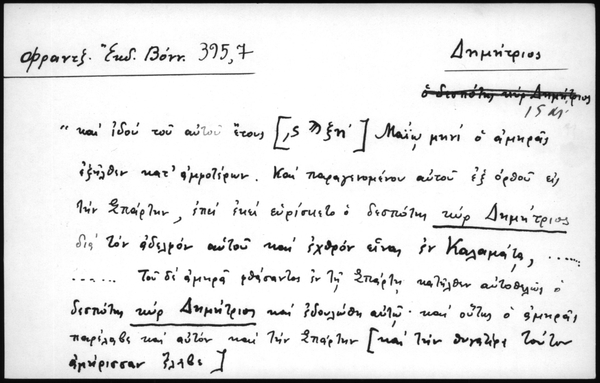 Φραντζ. Ἔκδ. Βόνν. 395,7
Δημήτριος
ὁ δεσπότης κύρ Δημήτριος
15 αἰ.
"καί ἰδού τοῦ αὐτοῦ ἔτους [͵ϛ ϡ ξη'] Μαΐῳ μηνί ὁ ἀμηρᾶς
ἐξῆλθεν κατ' ἀμφοτέρων. Καί παραγενομένου αὐτοῦ ἐξ ὀρθοῦ εἰς
τήν Σπάρτην, ἐπεί ἐκεῖ εὑρίσκετο ὁ δεσπότης κύρ Δημήτριος
διά τόν ἀδελφόν αὐτοῦ καί ἐχθρόν εἶναι ἐν Καλαμάτᾳ, ......
...... Τοῦ δέ ἀμηρᾶ φθάσαντος ἐν τῇ Σπάρτῃ κατῆλθεν αὐτοθελῶς ὁ
δεσπότης κύρ Δημήτριος καί ἐδουλώθη αὐτῷ· καί οὕτως ὁ ἀμηρᾶς
παρέλαβε καί αὐτόν καί τήν Σπάρτην [καί τήν θυγατέρα τούτου
ἀμήρισσαν ἔλαβε]